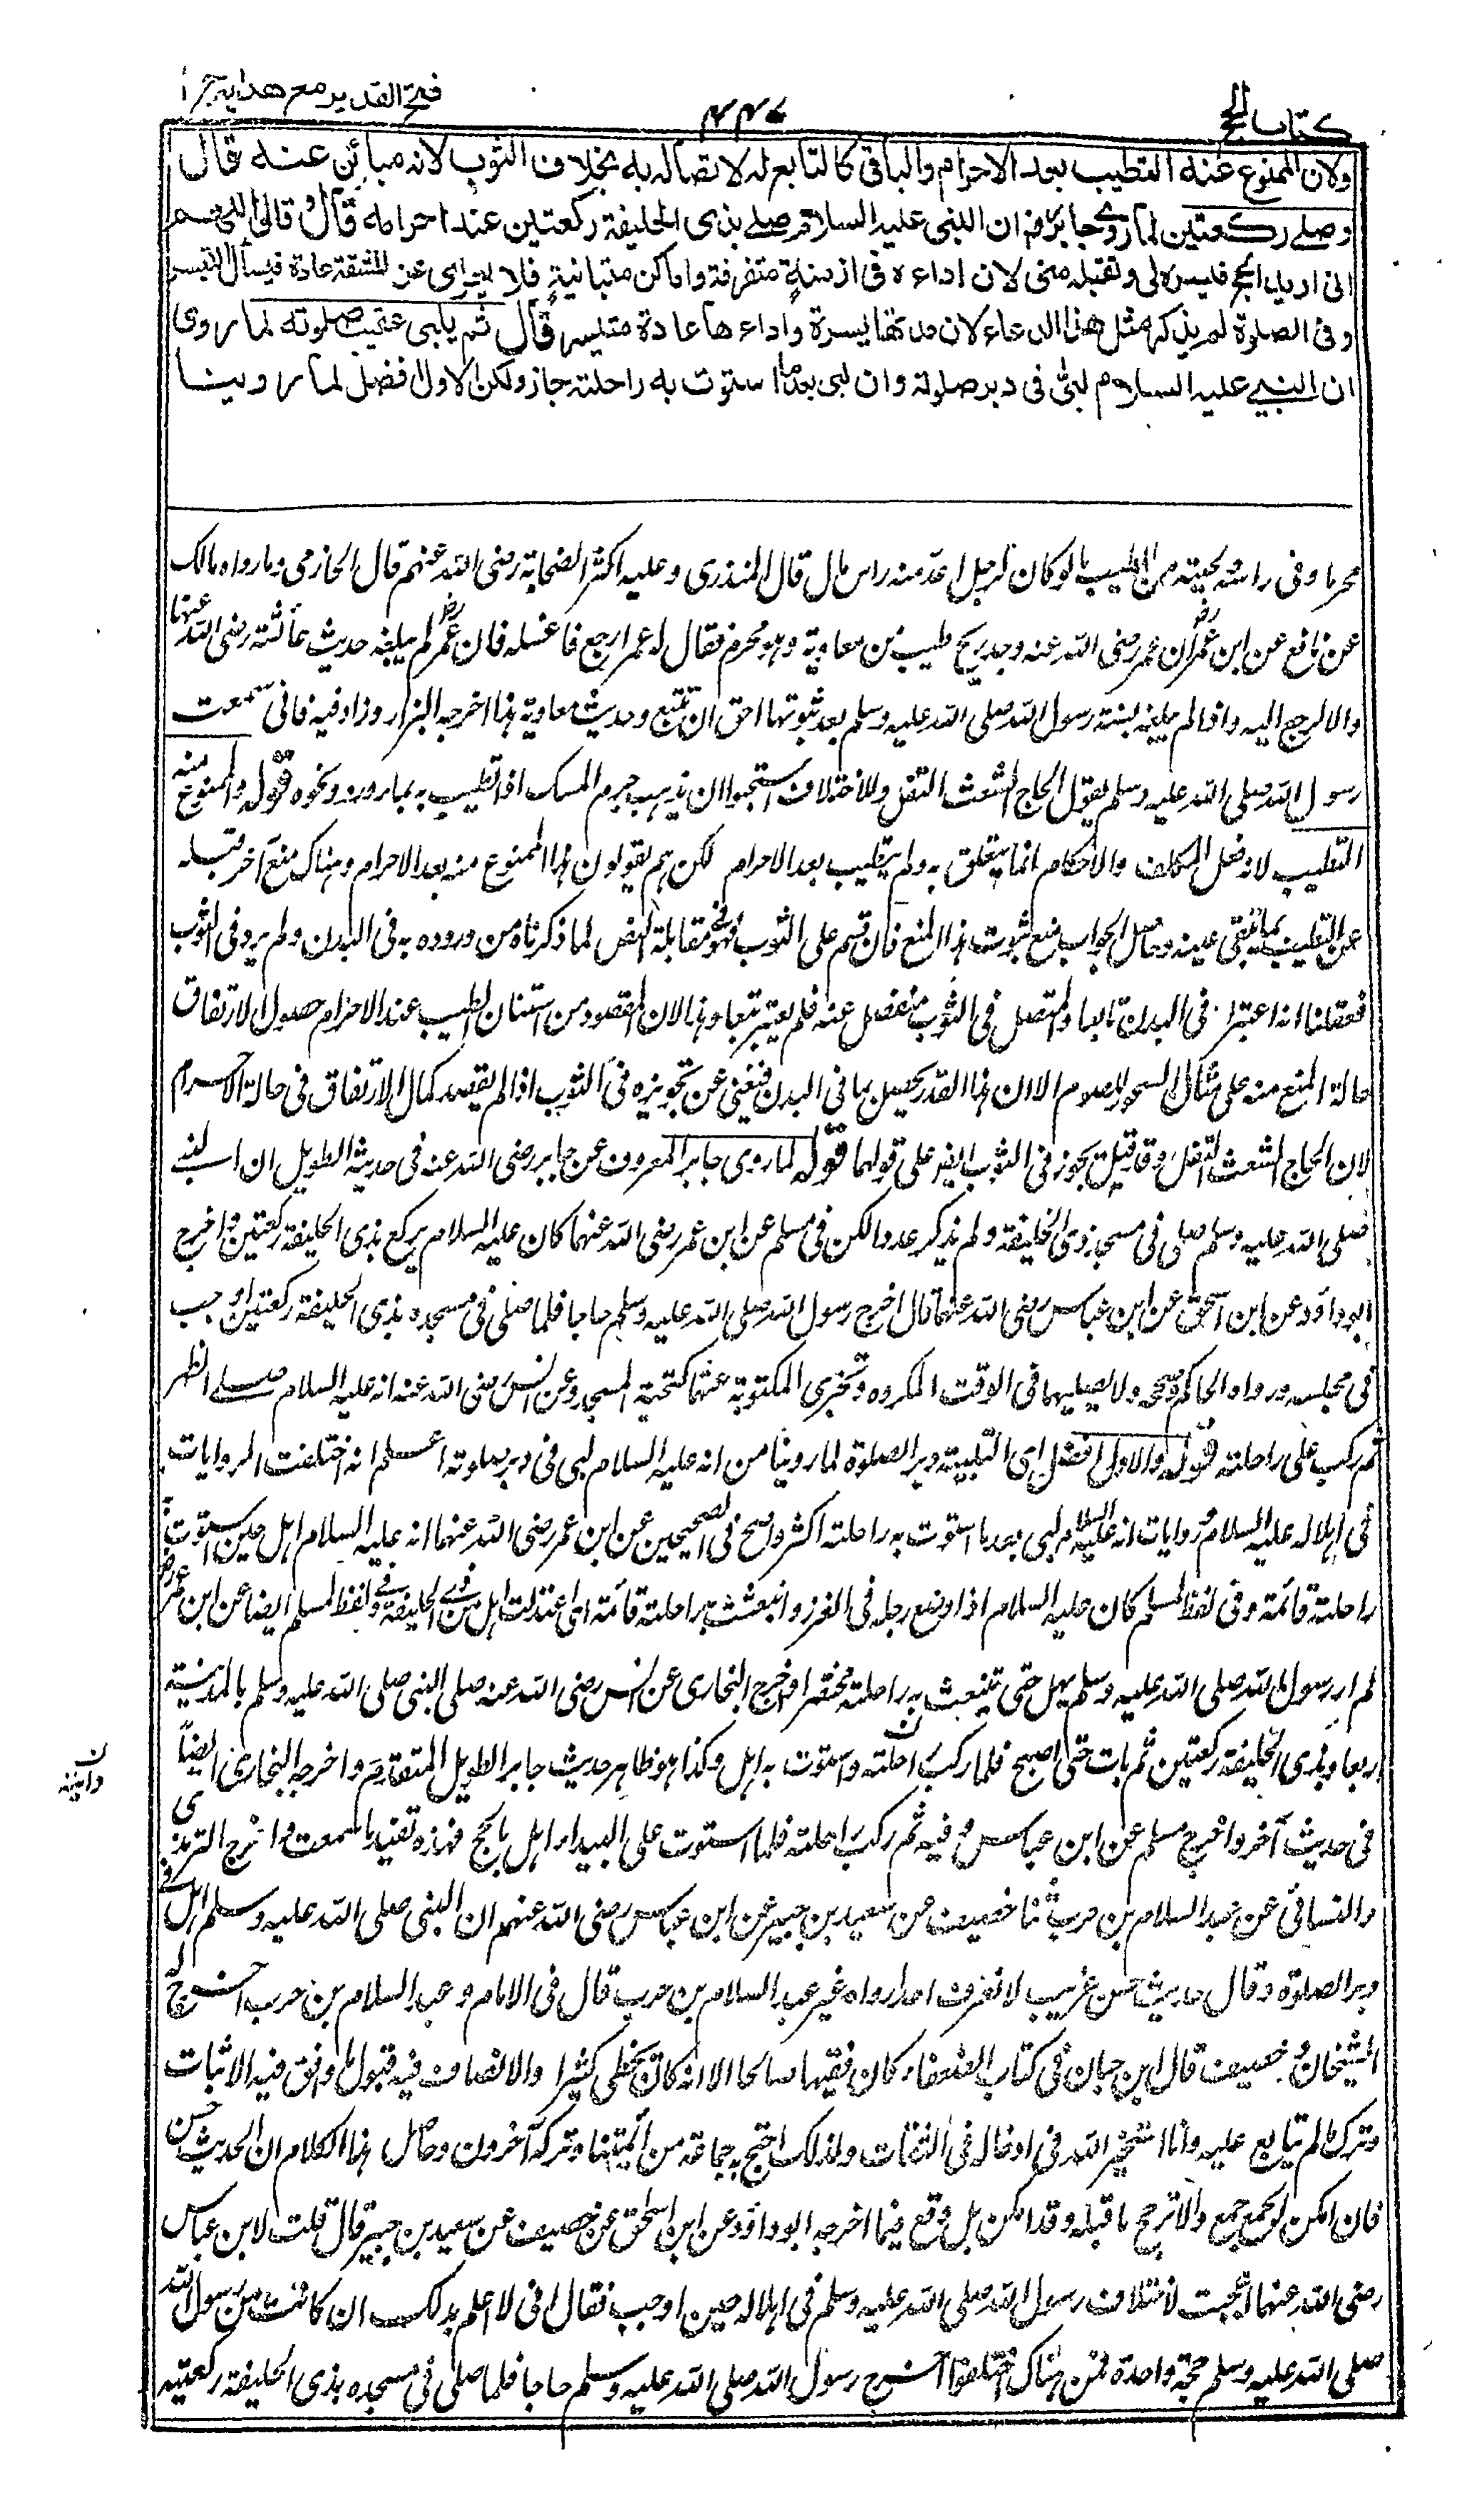 كتاب الحج
٤٤٧
فتح القدير مع هداية ج ١
ولان الممنوع عنه التطيب بعد الاحرام والباقي كالتابع له لاتصاله به بخلاف الثوب لانه مبائن عنه قال
وصلى ركعتين لما روى جابر رض ان النبي عليه السلام صلى بذي الحليفة ركعتين عند احرامه قال وقال اللهم
اني اريد الحج فيسره لي وتقبله مني لان اداءه في ازمنة متفرقة واماكن متبائنة فلا يعرى عن المشقة عادة فيسأل التيسير
وفي الصلوة لم يذكر مثل هذا الدعاء لان مدتها يسيرة واداءها عادة متيسر قال ثم يلبي عقيب صلوته لما روي
ان النبي عليه السلام لبى في دبر صلوته وان لبى بعد ما استوت به راحلته جاز ولكن الاول افضل لما روينا
محرما وفي راسه ولحيته من الطيب ما لو كان لرجل اعد منه راس مال قال المنذري وعليه اكثر الصحابة رضي الله عنهم قال الحازمي وما رواه مالك
عن نافع عن ابن عمر رض ان عمر رضي الله عنه وجد ريح طيب من معاوية وهو محرم فقال له عمر ارجع فاغسله فان عمر رض لم يبلغه حديث عائشة رضي الله عنها
والا لرجع اليه واذا لم يبلغه فسنة رسول الله صلى الله عليه وسلم بعد ثبوتها احق ان تتبع وحديث معاوية هذا اخرجه البزار وزاد فيه فاني سمعت
رسول الله صلى الله عليه وسلم يقول الحاج الشعث التفل وللاختلاف استحبوا ان يذيب جرم المسك اذا تطيب به بماء ورد ونحوه قوله والممنوع منه
التطيب لانه فعل المكلف والاحكام انما تتعلق به ولم يتطيب بعد الاحرام لكن هم يقولون هذا الممنوع منه بعد الاحرام وهناك منع آخر قبله
عن التطيب بما يبقى عينه وحاصل الجواب منع ثبوت هذا المنع فان قيس على الثوب فهو في مقابلة النص لما ذكرناه من وروده به في البدن ولم يرد في الثوب
فعقلنا انه اعتبر في البدن تابعا والمتصل في الثوب منفصل عنه فلم يعتبر تبعا وهذا لان المقصود من استنان الطيب عند الاحرام حصول الارتفاق
حالة المنع منه على مثال السحور للصوم الا ان هذا القدر يحصل بما في البدن فيغني عن تجويزه في الثوب اذ لم يقصد كمال الارتفاق في حالة الاحرام
لان الحاج الشعث التفل وقد قيل يجوز في الثوب ايضا على قولهما قوله لما روى جابر المعروف عن جابر رضي الله عنه في حديثه الطويل ان النبي
صلى الله عليه وسلم صلى في مسجد ذي الحليفة ولم يذكر عددا لكن في مسلم عن ابن عمر رضي الله عنهما كان عليه السلام يركع بذي الحليفة ركعتين واخرج
ابو داود عن ابن اسحق عن ابن عباس رضي الله عنهما قال خرج رسول الله صلى الله عليه وسلم حاجا فلما صلى في مسجده بذي الحليفة ركعتين اوجب
في مجلسه ورواه الحاكم وصححه ولا يصليهما في الوقت المكروه وتجزي المكتوبة عنهما كتحية المسجد وعن انس رضي الله عنه انه عليه السلام صلى الظهر
ثم ركب على راحلته قوله والاول افضل اي التلبية دبر الصلوة لما روينا من انه عليه السلام لبى في دبر صلوته اعلم انه اختلفت الروايات
في اهلاله عليه السلام وروايات انه عليه السلام لبى بعد ما استوت به راحلته اكثر واصح في الصحيحين عن ابن عمر رضي الله عنهما انه عليه السلام اهل حين استوت به
راحلته قائمة وفي لفظ لمسلم كان عليه السلام اذا وضع رجله في الغرز وانبعثت به راحلته قائمة اي اعتدلت اهل من ذي الحليفة وفي لفظ لمسلم ايضا عن ابن عمر رض
لم ار رسول الله صلى الله عليه وسلم يهل حتى تنبعث به راحلته مختصرا واخرج البخاري عن انس رضي الله عنه صلى النبي صلى الله عليه وسلم بالمدينة
اربعا وبذي الحليفة ركعتين ثم بات حتى اصبح فلما ركب راحلته واستوت به اهل وكذا هو ظاهر حديث جابر الطويل المتقدم واخرجه البخاري ايضاً
في حديث آخر واخرج مسلم عن ابن عباس رض وفيه ثم ركب راحلته فلما استوت على البيداء اهل بالحج فهذه تفيد ما سمعت واخرج الترمذي
والنسائي عن عبد السلام بن حرب ثنا خصيف عن سعيد بن جبير عن ابن عباس رضي الله عنهم ان النبي صلى الله عليه وسلم اهل في
دبر الصلوة وقال حديث حسن غريب لا نعرف احدا رواه غير عبد السلام بن حرب قال في الامام وعبد السلام بن حرب اخرج له
الشيخان وخصيف قال ابن حبان في كتاب الضعفاء كان فقيها صالحا الا انه كان يخطى كثيرا والانصاف فيه قبول ما وافق فيه الاثبات
وترك ما لم يتابع عليه وانا استخير الله في ادخاله في الثقات ولذلك احتج به جماعة من أئمتنا وتركه آخرون وحاصل هذا الكلام ان الحديث حسن
فان امكن الجمع جمع والا ترجح ما قبله وقد امكن بل وقع فيما اخرجه ابو داود عن ابن اسحق عن خصيف عن سعيد بن جبير قال قلت لابن عباس
رضي الله عنهما عجبت لاختلاف رسول الله صلى الله عليه وسلم في اهلاله حين اوجب فقال اني لا اعلم بذلك ان كانت من رسول الله
صلى الله عليه وسلم حجة واحدة فمن هناك اختلفوا خرج رسول الله صلى الله عليه وسلم حاجا فلما صلى في مسجده بذي الحليفة ركعتيه